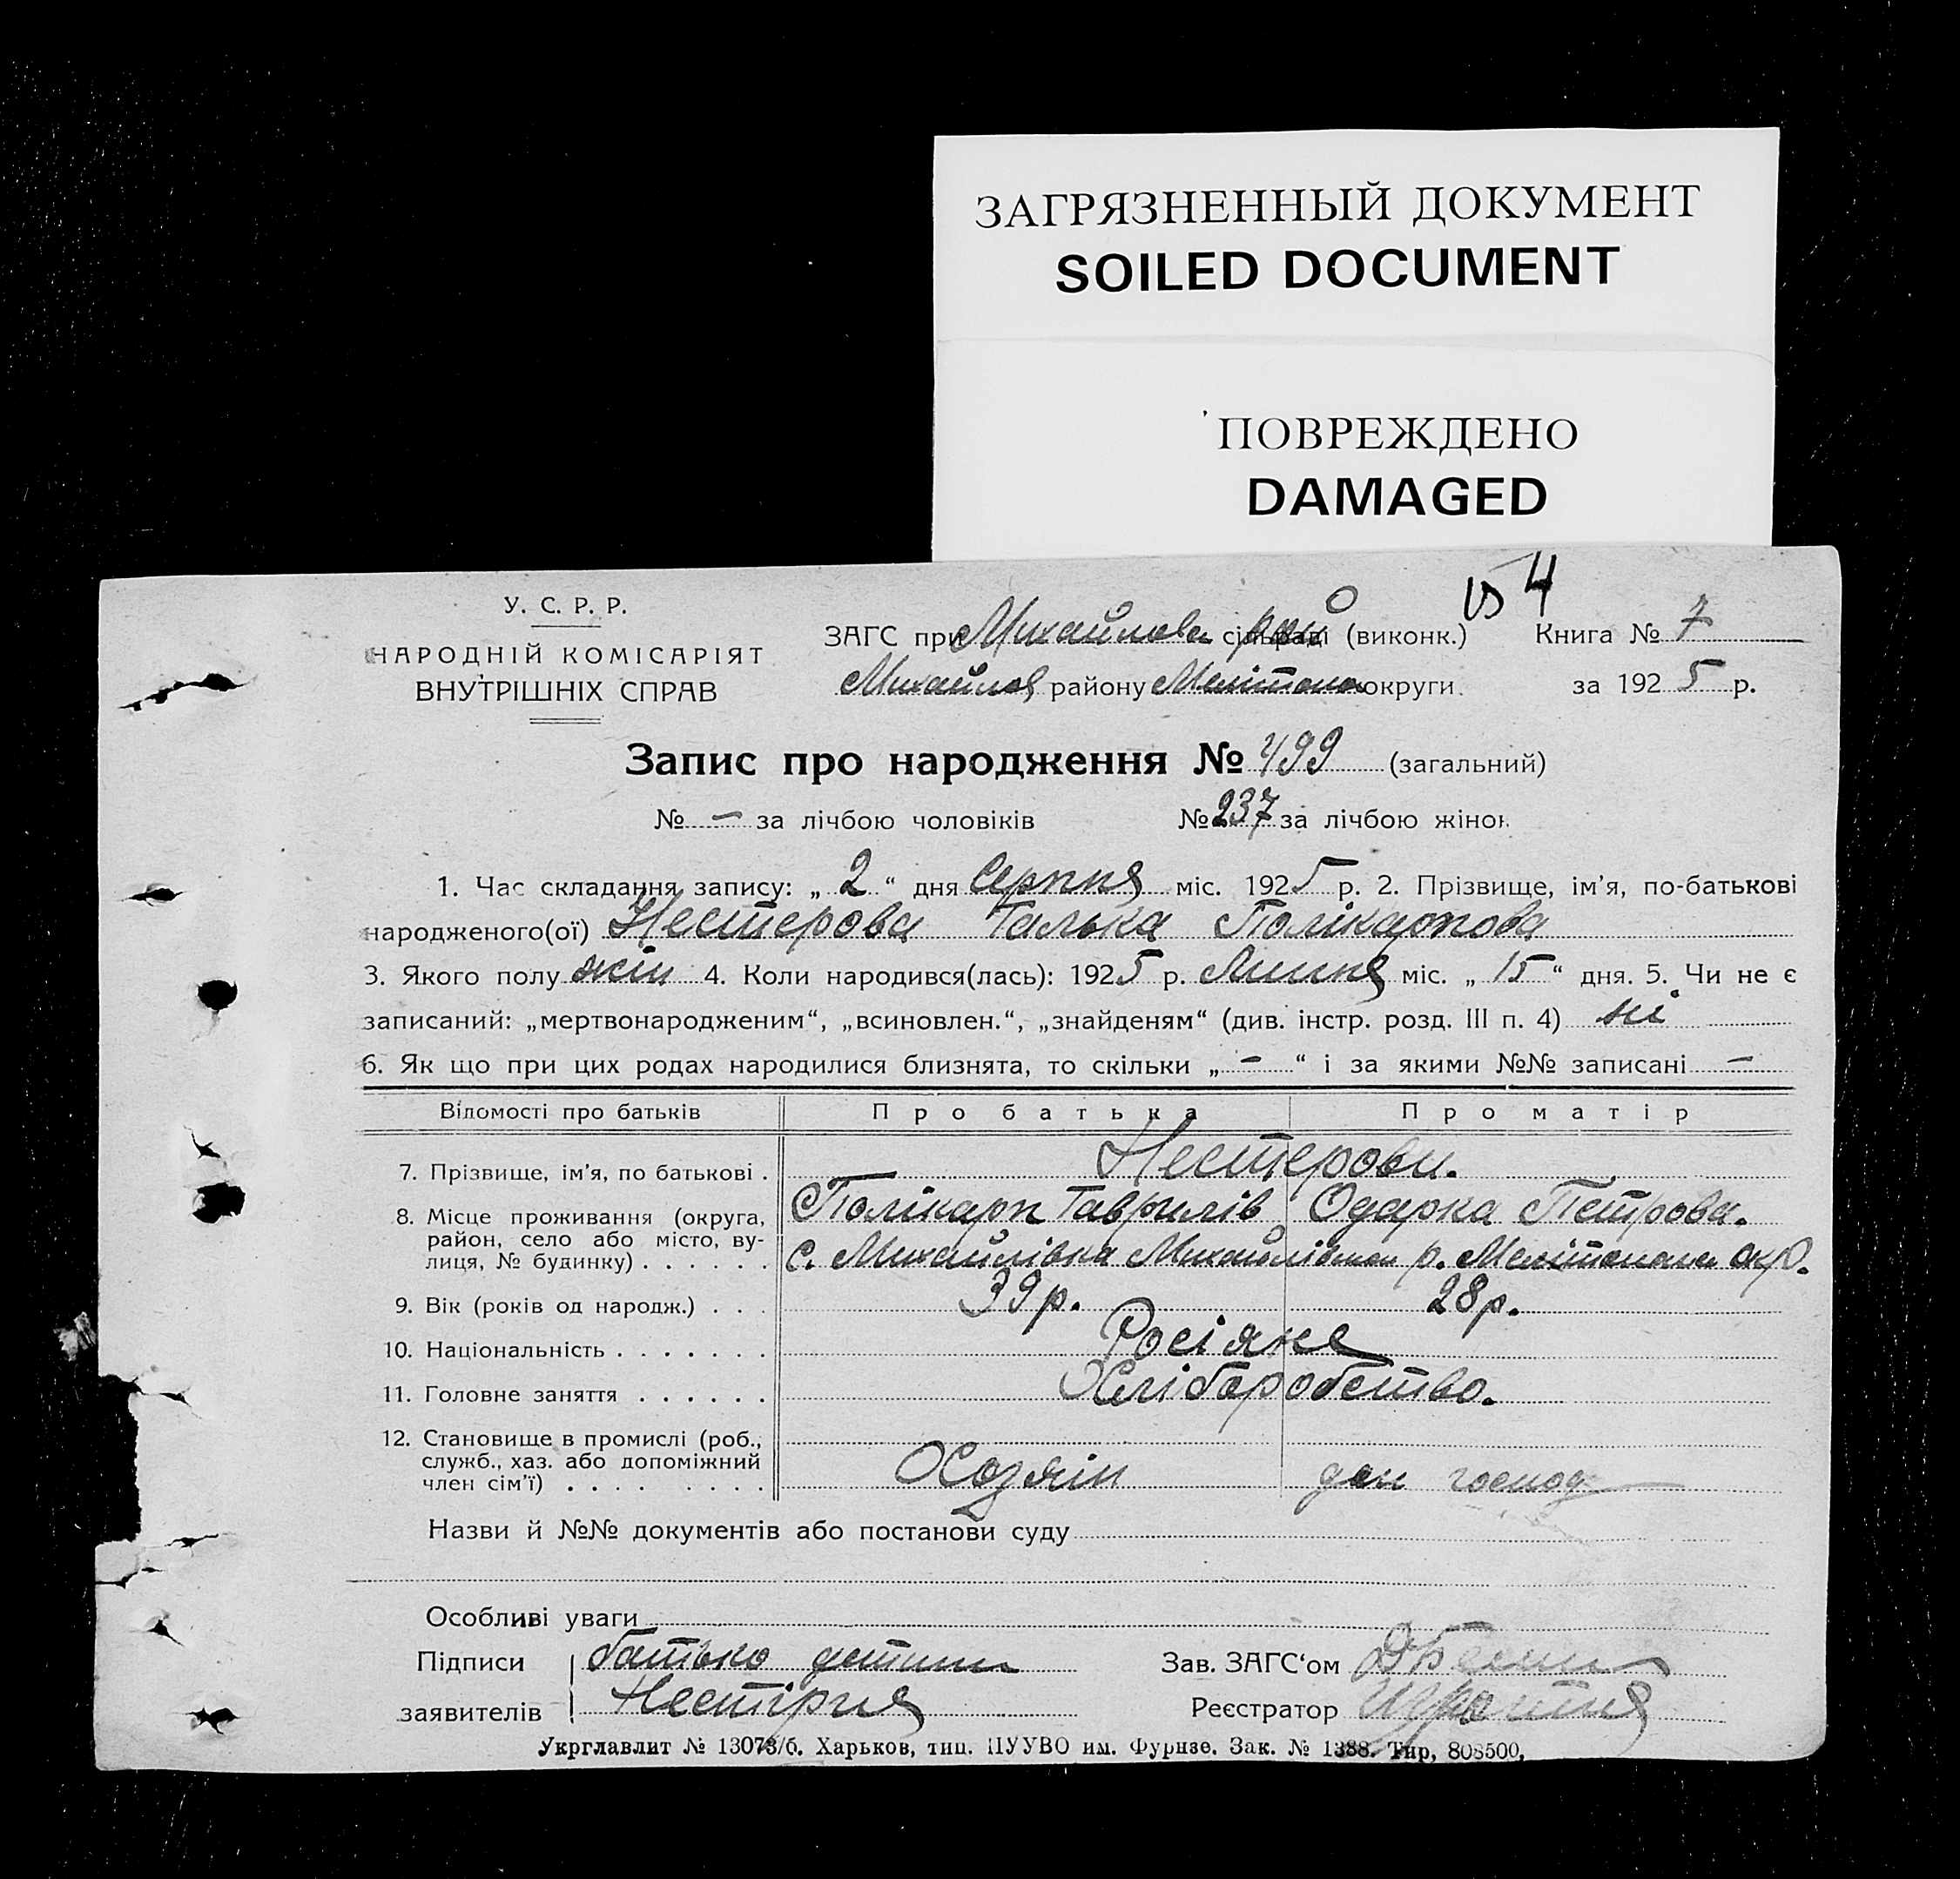 ЗАГРЯЗНЕННЫЙ ДОКУМЕНТ
SOILED DOCUMENT
ПОВРЕЖДЕНО
DAMAGED
4
У. С. Р. Р.
НАРОДНІЙ КОМІСАРІЯТ
ВНУТРІШНІХ СПРАВ
ЗАГС при Михайлов сільраді (виконк.) Книга № 7
Михайлов району Мелітопол округи за 1925 р.
Запис про народження № 499 (загальний)
№ — за лічбою чоловіків № 237 за лічбою жінок
1. Час складання запису: „ 2 “ дня Серпня міс. 1925 р. 2. Прізвище, ім’я, по-батькові
народженого(ої) Нестерова Галька Полікарпова
3. Якого полу жін 4. Коли народився(лась): 1925 р. Липня міс. „ 15 “ дня. 5. Чи не є
записаний: „мертвонародженим“, „всиновлен.“, „знайденям“ (див. інстр. розд. III п. 4) ні
6. Як що при цих родах народилися близнята, то скільки „ — “ і за якими №№ записані —
Відомості про батьків Про батька Про матір
7. Прізвище, ім’я, по батькові . Нестерови.
Полікарп Гаврилів Одарка Петрова.
8. Місце проживання (округа,
район, село або місто, ву-
лиця, № будинку) . . . . . . с. Михайлівка Михайлівськ р. Мелітопольс окр.
9. Вік (років од народж.) . . . 39 р. 28 р.
10. Національність . . . . . . . Росіяне
11. Головне заняття . . . . . . Хліборобство.
12. Становище в промислі (роб.,
служб., хаз. або допоміжний
член сім’ї) . . . . . . . . Хозяїн дом господ
Назви й №№ документів або постанови суду
Особливі уваги
Підписи батько дитини Зав. ЗАГС‘ом
заявителів Реєстратор
Укрглавлит № 13073/б. Харьков, тип. ПУУВО им. Фрунзе. Зак. № 1388. Тир, 808500,